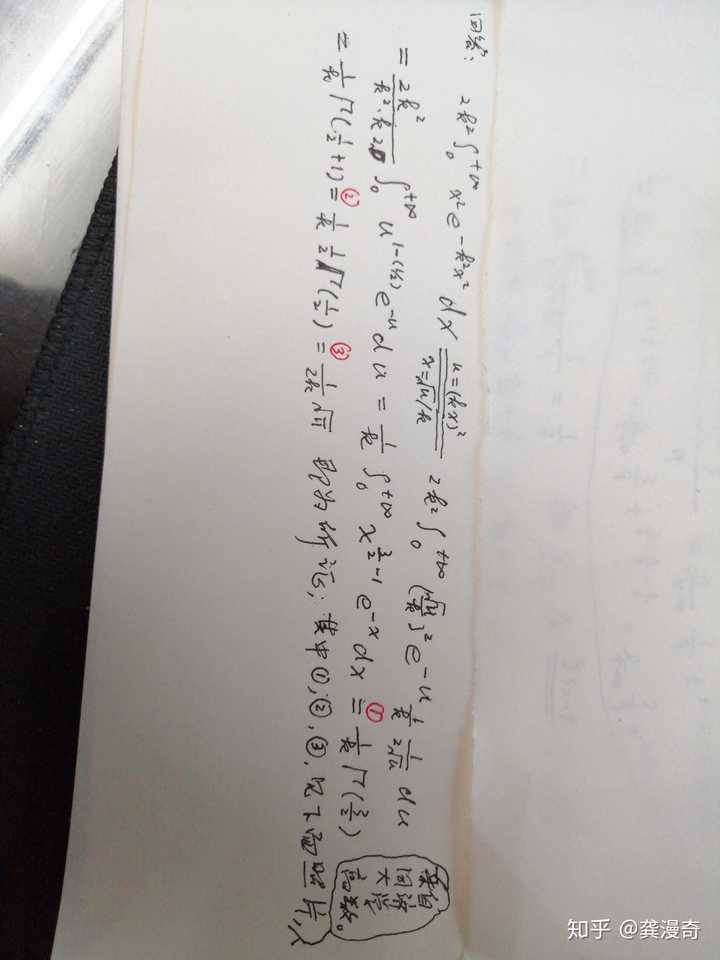 回答:
2k²∫₀^{+∞} x² e^{-k²x²} dx \xlongequal[x=√u/k]{u=(kx)²} 2k²∫₀^{+∞} (√u/k)² e^{-u} \frac{1}{k} \frac{1}{2√u} du
= \frac{2k²}{k²·k·2} ∫₀^{+∞} u^{1-(1/2)} e^{-u} du = \frac{1}{k} ∫₀^{+∞} x^{\frac{3}{2}-1} e^{-x} dx =① \frac{1}{k} Γ(\frac{3}{2})
= \frac{1}{k} Γ(\frac{1}{2}+1) =② \frac{1}{k} \frac{1}{2} Γ(\frac{1}{2}) =③ \frac{1}{2k} √π 即为所证; 其中①,②,③,见下面照片,
来自
同济
大学
高数。
知乎 @龚漫奇